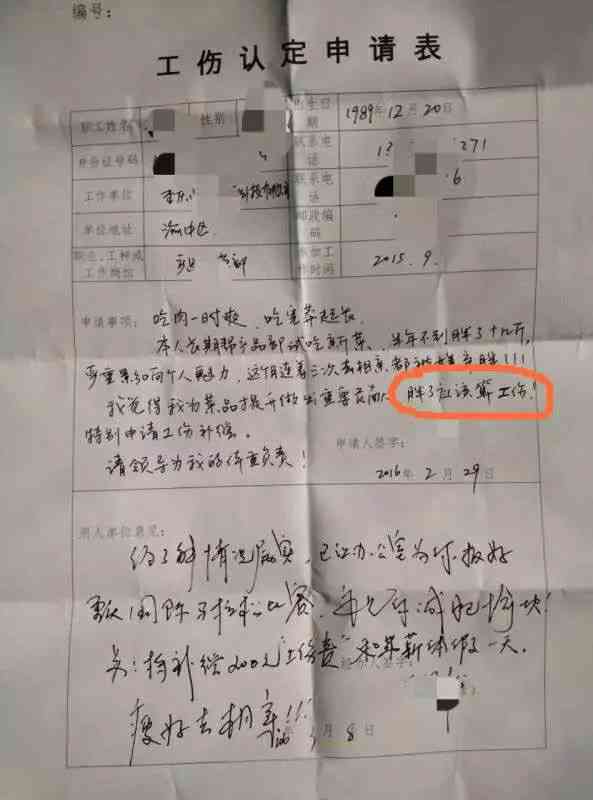 编号：
工伤认定申请表
职工姓名 性别 出生日期 1989年12月20日
身份证号码 联系电话 271
工作单位 科技有限 联系电话 6
单位地址 渝中区 邮政编码
职业、工种或工作岗位 参加工作时间 2015.9.
申请事项： 吃肉一时爽，
本人长期帮产品部试吃新菜，半年不到胖了十几斤，
严重影响个人魅力，这个月连着三次去相亲都被嫌弃胖！！！
我觉得我为菜品提升做出重要贡献，胖了应该算工伤！
特别申请工伤补偿。
请领导为我的体重负责！
申请人签字：
2016年2月29日
用人单位意见：
经了解情况属实，已让办公室为你报好
国际马拉松比赛，
另：将补偿200元“工伤费”和年薪休假一天，
瘦好去相亲！！！
年 月8日